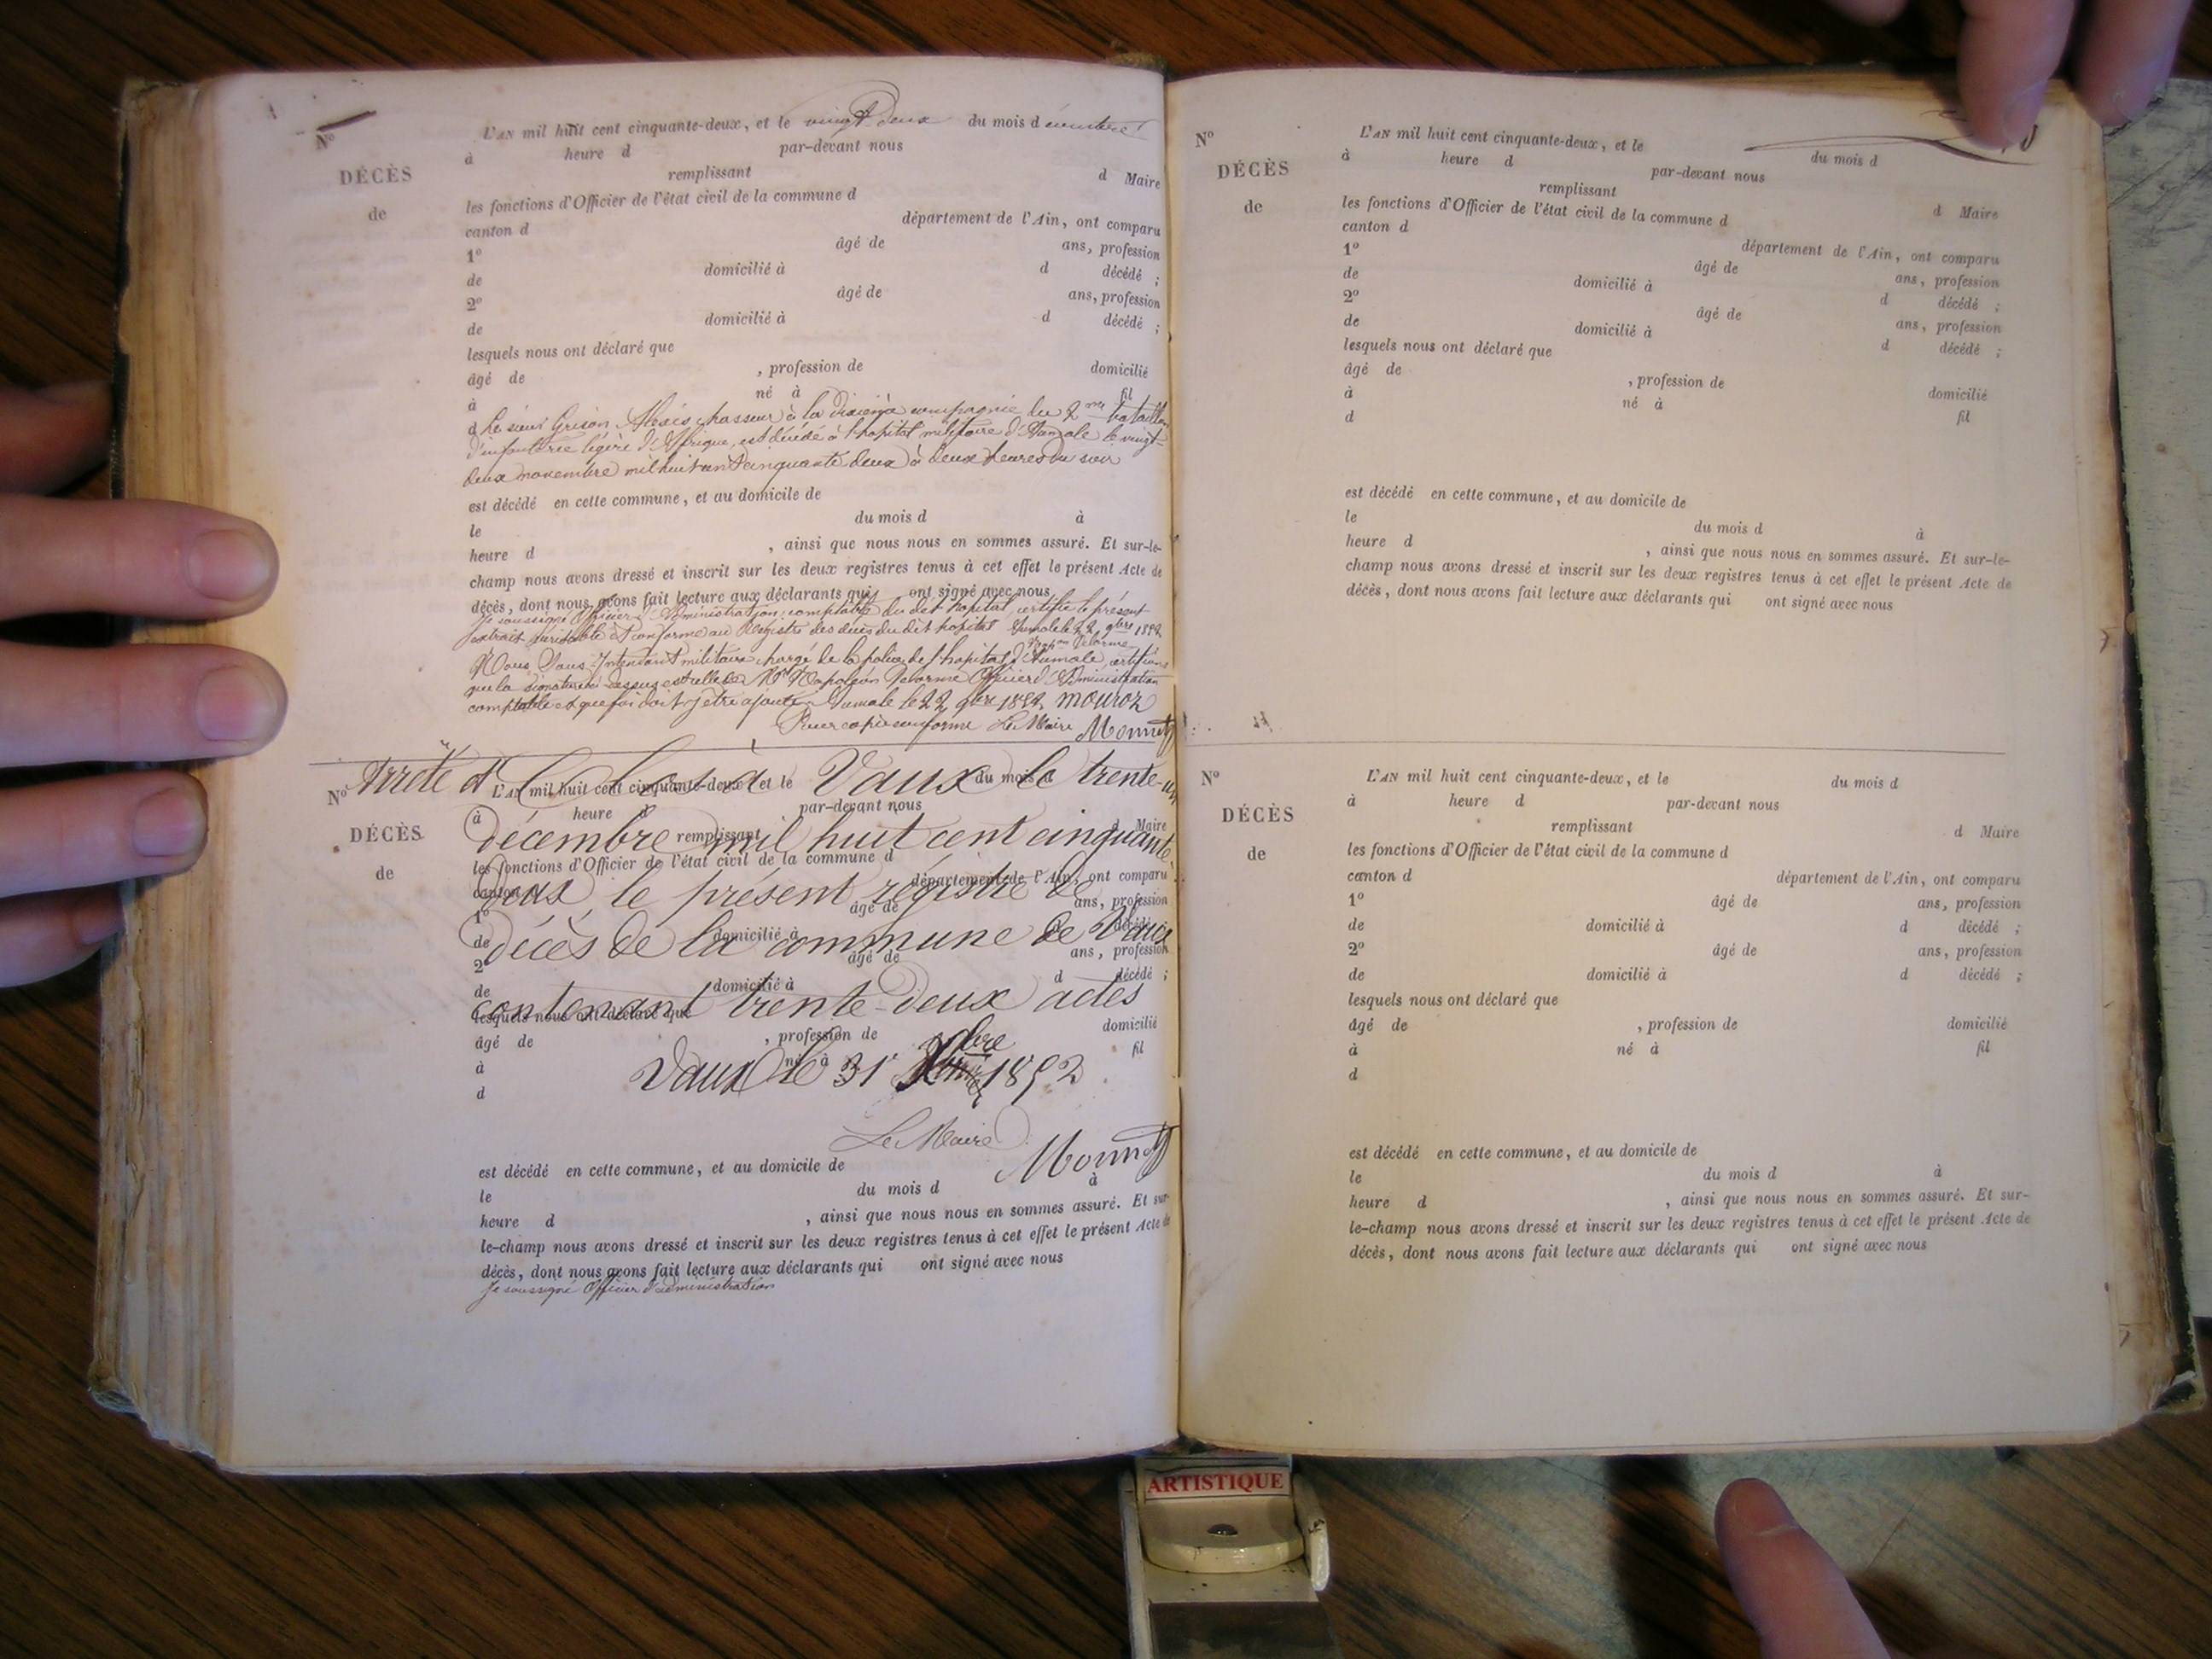 N°
DÉCÈS
de
L'AN mil huit cent cinquante-deux, et le vingt Deux du mois d écembre
à heure d par-devant nous
remplissant d Maire
les fonctions d'Officier de l'état civil de la commune d
canton d département de l'Ain, ont comparu
1° âgé de ans, profession
de domicilié à d décédé ;
2° âgé de ans, profession
de domicilié à d décédé ;
lesquels nous ont déclaré que
âgé de , profession de domicilié
à né à fil
d Le sieur Grison Alexis chasseur à la dixième compagnie du 2me bataillon
d'infanterie légère d'Afrique, est décédé à l'hopital militaire d'Aumale le vingt-
deux novembre mil huit cent cinquante deux à deux heures du soir
est décédé en cette commune, et au domicile de
le du mois d à
heure d , ainsi que nous nous en sommes assuré. Et sur-le-
champ nous avons dressé et inscrit sur les deux registres tenus à cet effet le présent Acte de
décès, dont nous avons fait lecture aux déclarants qui ont signé avec nous
Je soussigné Officier d'Administration, comptable du dit hopital, certifie le présent
extrait véritable et conforme au Registre des décès du dit hopital Aumale le 22 9bre 1852
Napoléon Delorme
Nous Sous-Intendant militaire chargé de la police de l'hopital d'Aumale, certifions
que la signature ci-dessus est celle de Mr Napoléon Delorme Officier d'Administration
comptable et que foi doit y être ajoutée Aumale le 22 9bre 1852 mouroz
Pour copie conforme Le Maire Monnet
N°
DÉCÈS
de
L'AN mil huit cent cinquante-deux, et le du mois d
à heure d par-devant nous
remplissant d Maire
les fonctions d'Officier de l'état civil de la commune d
canton d département de l'Ain, ont comparu
1° âgé de ans, profession
de domicilié à d décédé ;
2° âgé de ans, profession
de domicilié à d décédé ;
lesquels nous ont déclaré que
âgé de , profession de domicilié
à né à fil
d
Arrêté et Clos à Vaux le trente-un
décembre mil huit cent cinquante
deux, le présent régistre de
décès de la commune de Vaux
contenant trente-deux actes
Vaux le 31 Xbre 1852
Le Maire
Monnet
est décédé en cette commune, et au domicile de
le du mois d à
heure d , ainsi que nous nous en sommes assuré. Et sur-
le-champ nous avons dressé et inscrit sur les deux registres tenus à cet effet le présent Acte de
décès, dont nous avons fait lecture aux déclarants qui ont signé avec nous
Je soussigné Officier d'administration
N°
DÉCÈS
de
L'AN mil huit cent cinquante-deux, et le du mois d
à heure d par-devant nous
remplissant d Maire
les fonctions d'Officier de l'état civil de la commune d
canton d département de l'Ain, ont comparu
1° âgé de ans, profession
de domicilié à d décédé ;
2° âgé de ans, profession
de domicilié à d décédé ;
lesquels nous ont déclaré que
âgé de , profession de domicilié
à né à fil
d
est décédé en cette commune, et au domicile de
le du mois d à
heure d , ainsi que nous nous en sommes assuré. Et sur-le-
champ nous avons dressé et inscrit sur les deux registres tenus à cet effet le présent Acte de
décès, dont nous avons fait lecture aux déclarants qui ont signé avec nous
N°
DÉCÈS
de
L'AN mil huit cent cinquante-deux, et le du mois d
à heure d par-devant nous
remplissant d Maire
les fonctions d'Officier de l'état civil de la commune d
canton d département de l'Ain, ont comparu
1° âgé de ans, profession
de domicilié à d décédé ;
2° âgé de ans, profession
de domicilié à d décédé ;
lesquels nous ont déclaré que
âgé de , profession de domicilié
à né à fil
d
est décédé en cette commune, et au domicile de
le du mois d à
heure d , ainsi que nous nous en sommes assuré. Et sur-
le-champ nous avons dressé et inscrit sur les deux registres tenus à cet effet le présent Acte de
décès, dont nous avons fait lecture aux déclarants qui ont signé avec nous
ARTISTIQUE